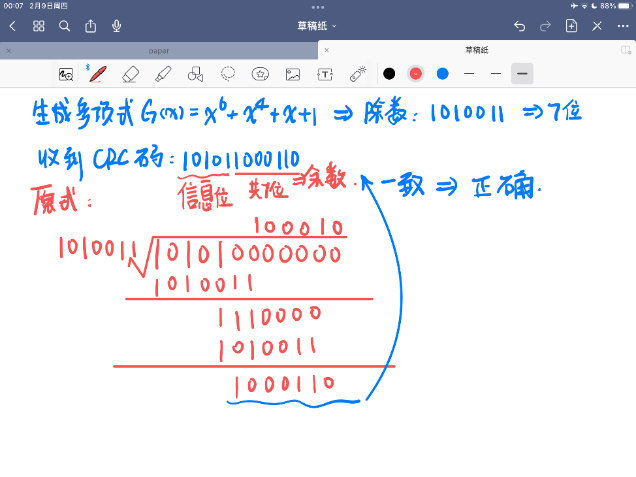 00:07 2月9日周四
88%
草稿纸
paper
草稿纸
生成多项式 G(x)=x⁶+x⁴+x+1 ⇒ 除数：1010011 ⇒ 7位
收到 CRC 码：101011000110
信息位 共7位 ⇒余数. 一致 ⇒ 正确.
原式：
100010
1010011 10101 0000000
1010011
1110000
1010011
1000110